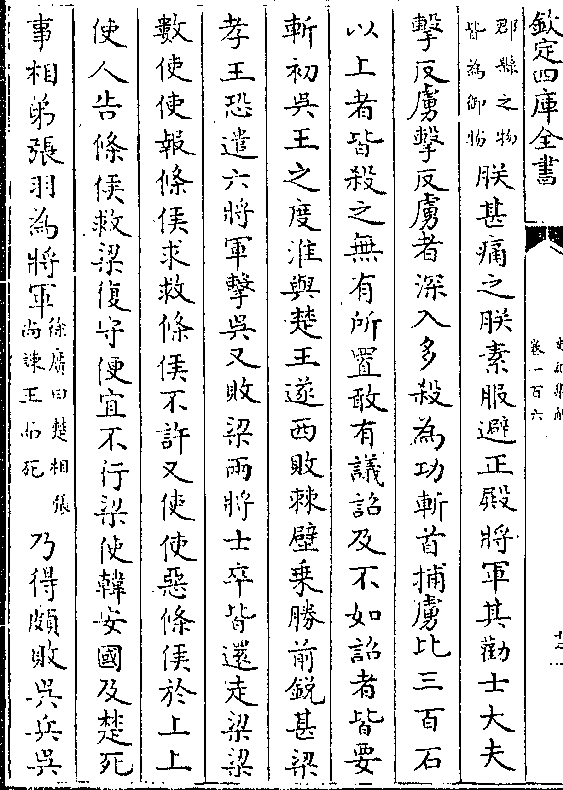 欽定四庫全書
史記集解
卷一百六
郡縣之物
皆為御物
朕甚痛之朕素服避正殿將軍其勸士大夫
擊反虜擊反虜者深入多殺為功斬首捕虜比三百石
以上者皆殺之無有所置敢有議詔及不如詔者皆要
斬初吳王之度淮與楚王遂西敗棘壁乗勝前銳甚梁
孝王恐遣六將軍擊吳又敗梁兩將士卒皆還走梁梁
數使使報條侯求救條侯不許又使使惡條侯於上上
使人告條侯救梁復守便宜不行梁使韓安國及楚死
事相弟張羽為將軍
徐廣曰楚相張
尚諫王而死
乃得頗敗吳兵吳